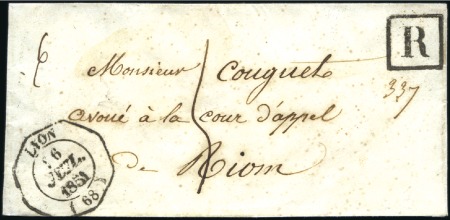 R
6
Monsieur Couguet
337
avoué à la cour d'appel
de Riom
LYON
6
JUIL.
1851
(68)